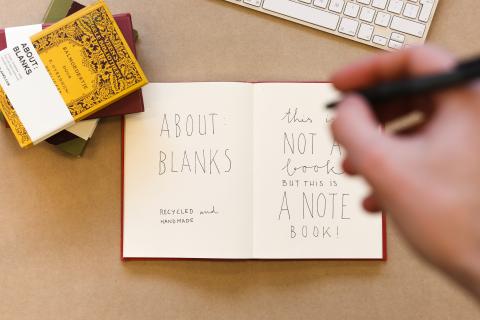 ABOUT:
BLANKS
ABOUT:
BLANKS
RECYCLED and
HANDMADE
this is
NOT A
book
BUT THIS IS
A NOTE
BOOK!